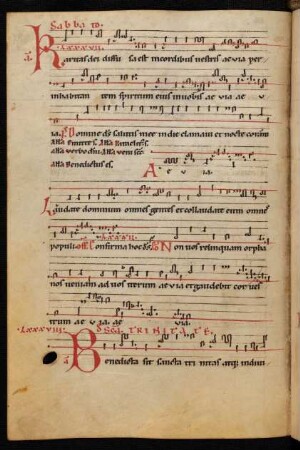 Sabbato.
LXXXVII.
Karitas dei diffusa est in cordibus vestris ae via per
inhabitantem spiritum eius in vobis ae via ae
via. Domine deus salutis mee in die clamavi et nocte coram
Benedictus es. A e v ia.
Laudate dominum omnes gentes et collaudate eum omnes
populi Confirma hoc deus Non vos relinquam orpha
nos veniam ad vos iterum ae via et gaudebit cor ves
trum ae v ia. ae via.
LXXXVIII. TRINITATE.
Benedicta sit sancta trinitas atque indivi